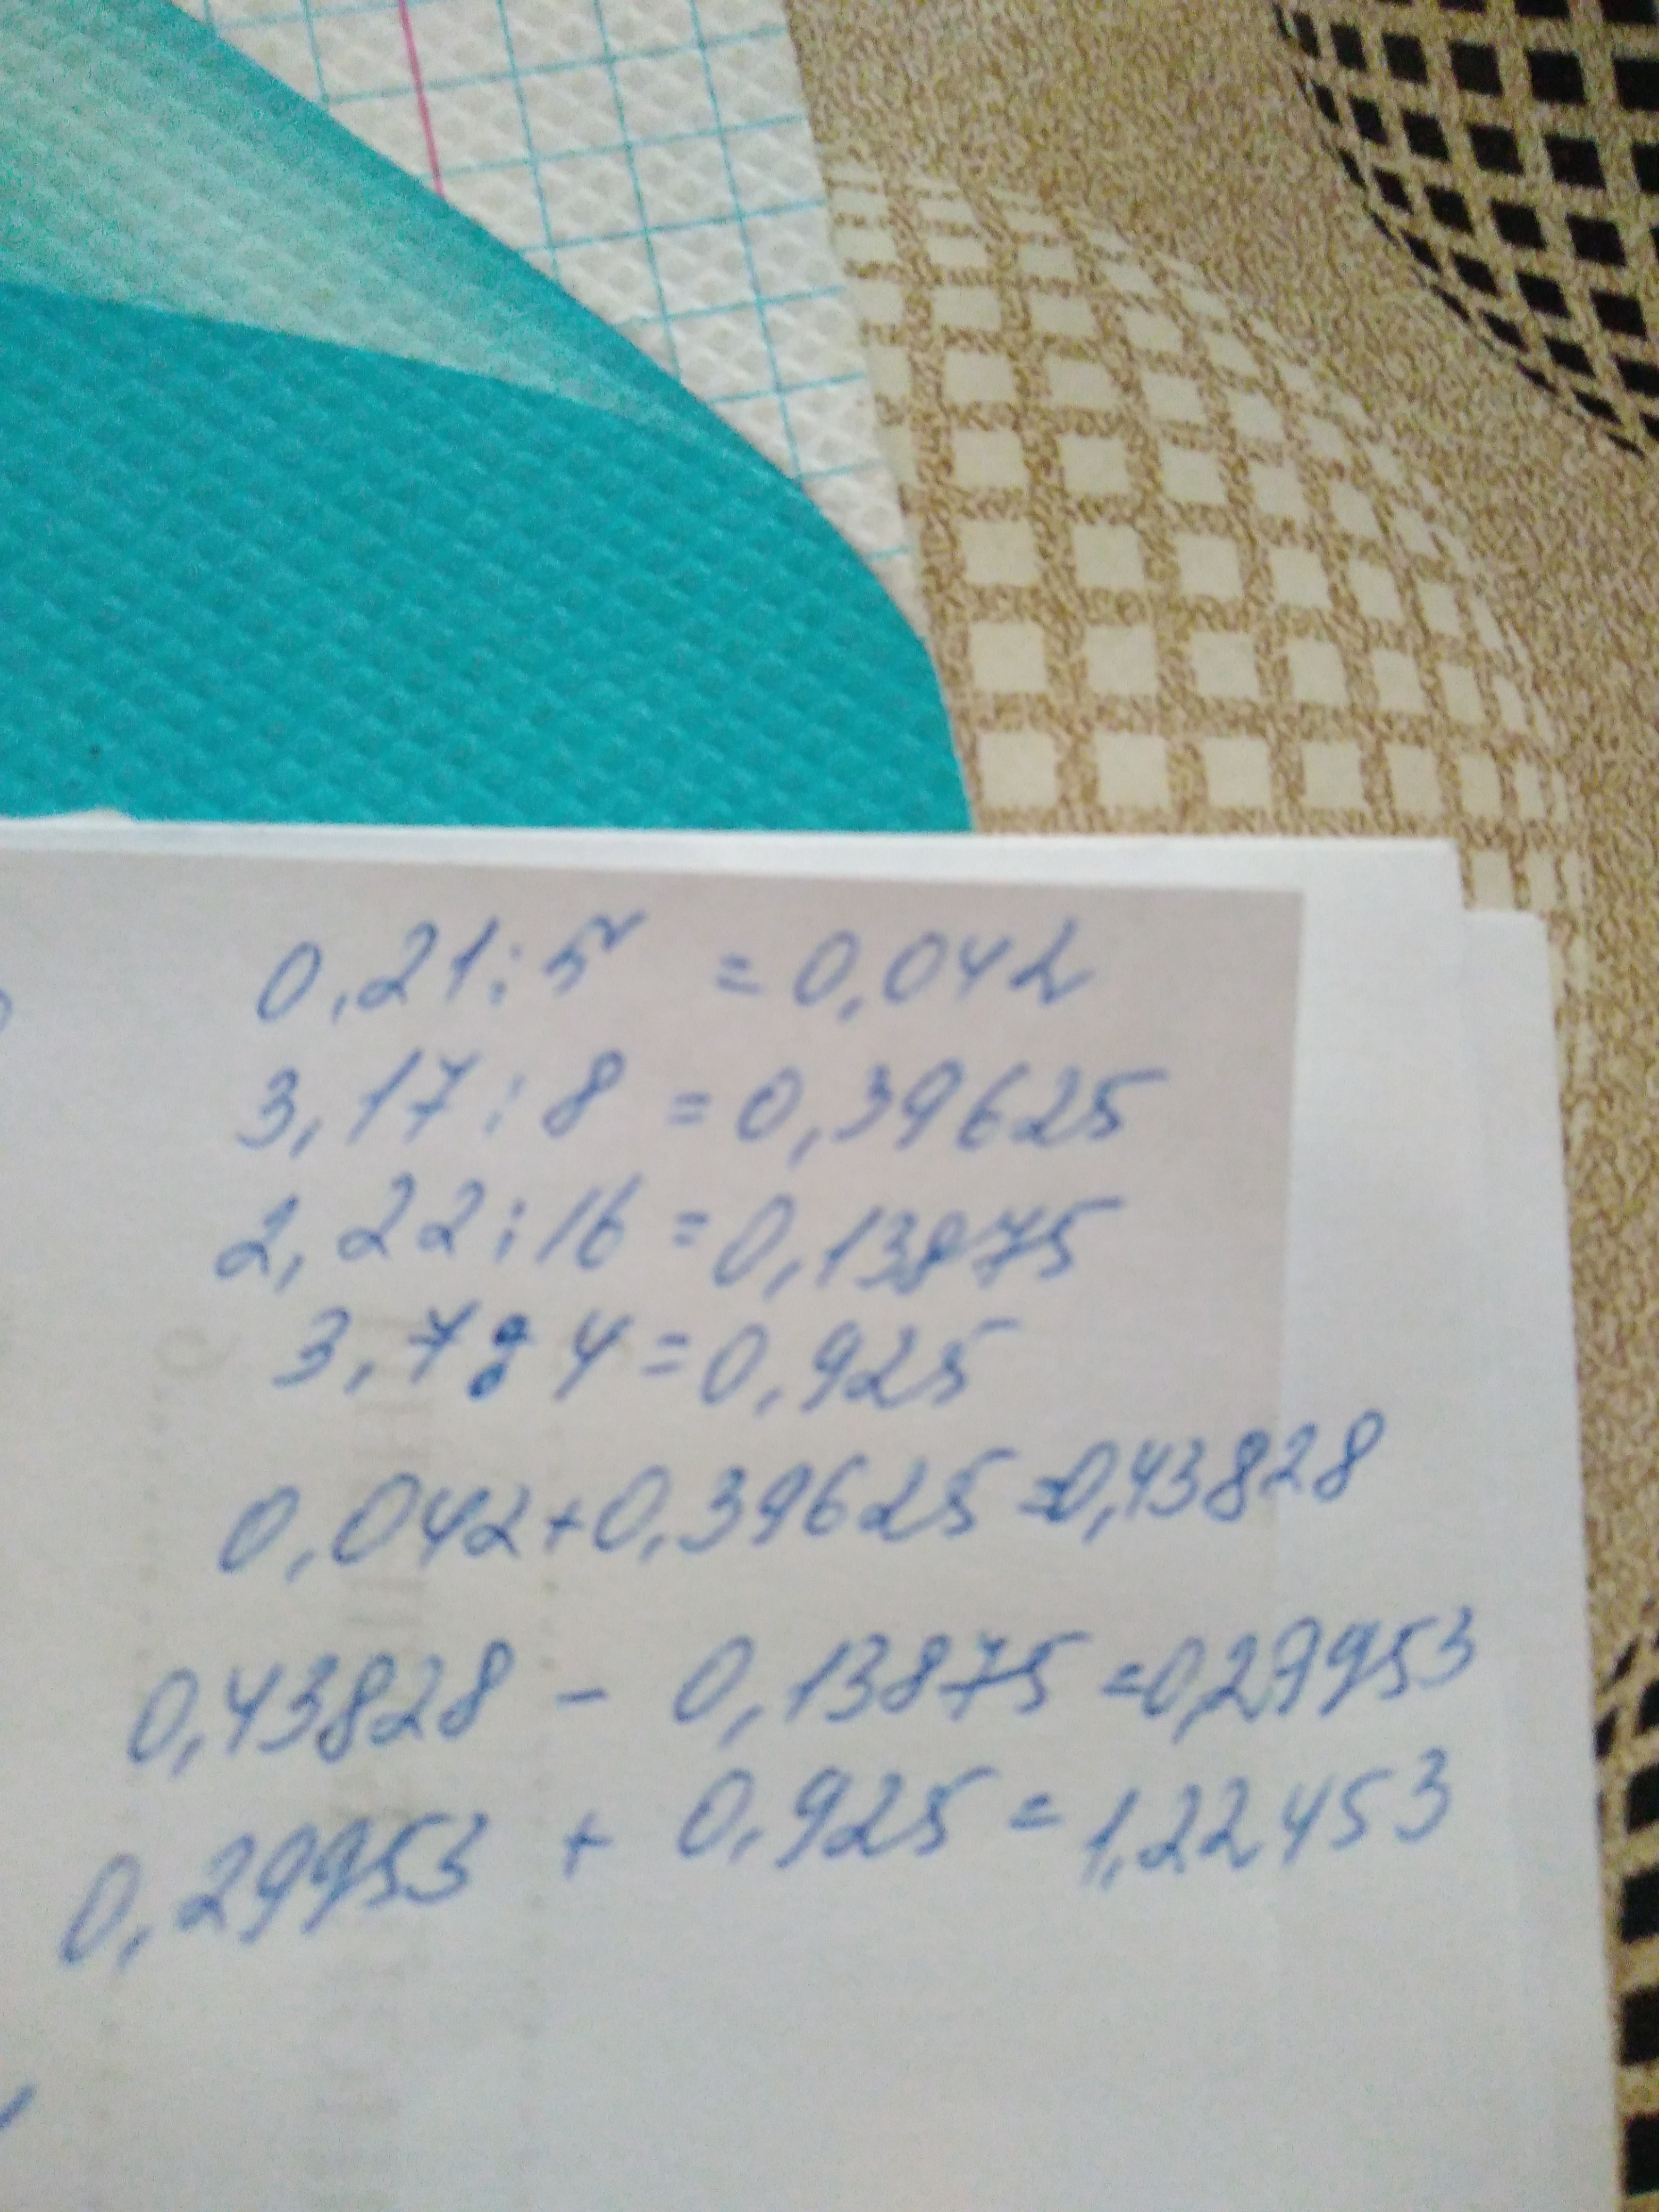 0,21:5 = 0,042
3,17:8 = 0,39625
2,22:16 = 0,13875
3,7:4 = 0,925
0,042+0,39625=0,43828
0,43828 - 0,13875=0,29953
0,29953 + 0,925 = 1,22453